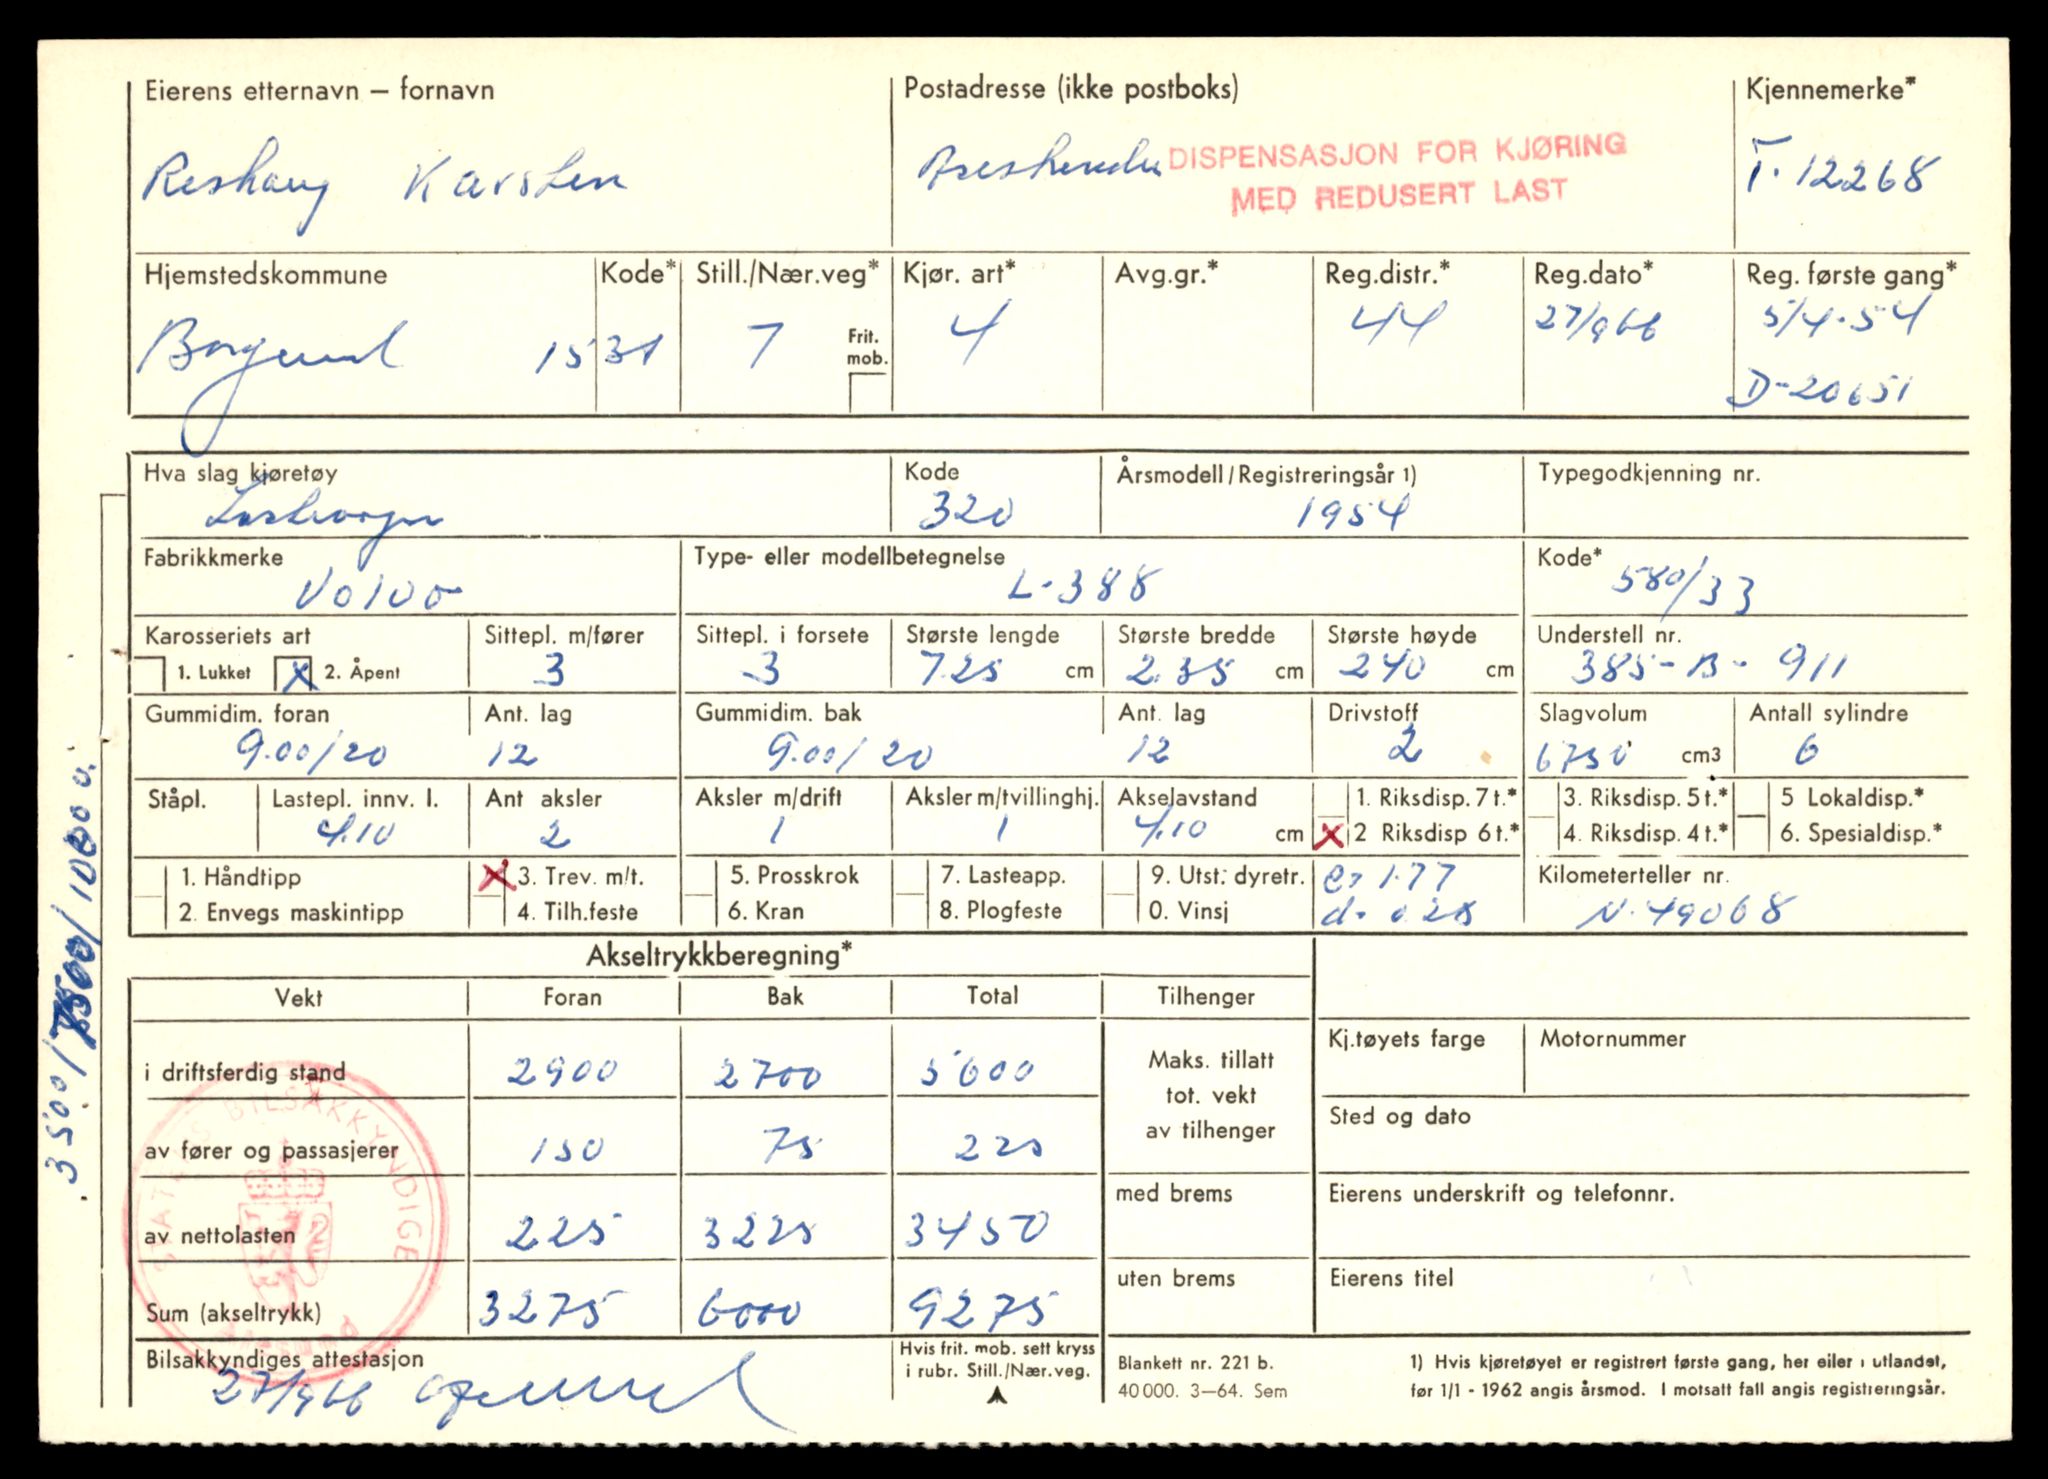 Eierens etternavn – fornavn Postadresse (ikke postboks) Kjennemerke*
Karsten DISPENSASJON FOR KJØRING T-12268
MED REDUSERT LAST
Hjemstedskommune Kode* Still./Nær.veg* Kjør. art* Avg.gr.* Reg.distr.* Reg.dato* Reg. første gang*
Borgund 1531 7 Frit. mob. 4 44 27/9 66 5/4-54
D-20651
Hva slag kjøretøy Kode Årsmodell/Registreringsår 1) Typegodkjenning nr.
Lastevogn 320 1954
Fabrikkmerke Type- eller modellbetegnelse Kode*
Volvo L-388 580/33
Karosseriets art Sittepl. m/fører Sittepl. i forsete Største lengde Største bredde Største høyde Understell nr.
1. Lukket X 2. Åpent 3 3 725 cm 2.35 cm 240 cm 385-B-911
Gummidim. foran Ant. lag Gummidim. bak Ant. lag Drivstoff Slagvolum Antall sylindre
9.00/20 12 9.00/20 12 2 6750 cm3 6
Ståpl. Lastepl. innv. l. Ant aksler Aksler m/drift Aksler m/tvillinghj. Akselavstand 1. Riksdisp. 7 t.* 3. Riksdisp. 5 t.* 5 Lokaldisp.*
4.10 2 1 1 4.10 cm X 2 Riksdisp 6 t.* 4. Riksdisp. 4 t.* 6. Spesialdisp.*
1. Håndtipp X 3. Trev. m/t. 5. Prosskrok 7. Lasteapp. 9. Utst. dyretr. 1.77 Kilometerteller nr.
2. Envegs maskintipp 4. Tilh.feste 6. Kran 8. Plogfeste 0. Vinsj d- 0.25 N. 49068
Akseltrykkberegning*
Vekt Foran Bak Total Tilhenger
i driftsferdig stand 2900 2700 5600 Maks. tillatt tot. vekt av tilhenger Kj.tøyets farge Motornummer
av fører og passasjerer 150 75 225 Sted og dato
av nettolasten 225 3225 3450 med brems Eierens underskrift og telefonnr.
Sum (akseltrykk) 3275 6000 9275 uten brems Eierens titel
STATENS BILSAKKYNDIGE
Ålesund
Bilsakkyndiges attestasjon Hvis frit. mob. sett kryss i rubr. Still./Nær.veg.
27/9 66
Blankett nr. 221 b.
40 000. 3–64. Sem
1) Hvis kjøretøyet er registrert første gang, her eiler i utlandet,
før 1/1 - 1962 angis årsmod. I motsatt fall angis registreringsår.
3500/7500/